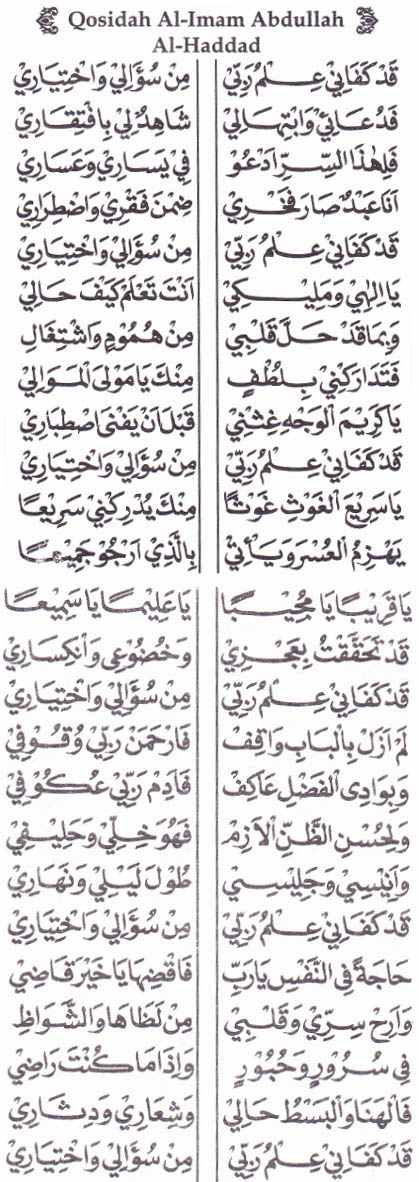 Qosidah Al-Imam Abdullah
Al-Haddad
قَدْ كَفَانِيْ عِلْمُ رَبِّيْ مِنْ سُؤَالِيْ وَاخْتِيَارِيْ
فَدُعَائِيْ وَابْتِهَالِيْ شَاهِدٌ لِيْ بِافْتِقَارِيْ
فَلِهٰذَا السِّرِّ اَدْعُوْ فِيْ يَسَارِيْ وَعَسَارِيْ
اَنَا عَبْدٌ صَارَ فَخْرِيْ ضِمْنَ فَقْرِيْ وَاضْطِرَارِيْ
قَدْ كَفَانِيْ عِلْمُ رَبِّيْ مِنْ سُؤَالِيْ وَاخْتِيَارِيْ
يَا اِلٰهِيْ وَمَلِيْكِيْ اَنْتَ تَعْلَمُ كَيْفَ حَالِيْ
وَبِمَا قَدْ حَلَّ قَلْبِيْ مِنْ هُمُوْمٍ وَاشْتِغَالِ
فَتَدَارَكْنِيْ بِلُطْفٍ مِنْكَ يَا مَوْلَى الْمَوَالِيْ
يَا كَرِيْمَ الْوَجْهِ غِثْنِيْ قَبْلَ اَنْ يَفْنَى اصْطِبَارِيْ
قَدْ كَفَانِيْ عِلْمُ رَبِّيْ مِنْ سُؤَالِيْ وَاخْتِيَارِيْ
يَا سَرِيْعَ الْغَوْثِ غَوْثًا مِنْكَ يُدْرِكْنِيْ سَرِيْعًا
يَهْزِمُ الْعُسْرَ وَيَأْتِيْ بِالَّذِيْ اَرْجُوْ جَمِيْعًا
يَا قَرِيْبًا يَا مُجِيْبًا يَا عَلِيْمًا يَا سَمِيْعًا
قَدْ تَحَقَّقْتُ بِعَجْزِيْ وَخُضُوْعِى وَانْكِسَارِيْ
قَدْ كَفَانِيْ عِلْمُ رَبِّيْ مِنْ سُؤَالِيْ وَاخْتِيَارِيْ
لَمْ اَزَلْ بِالْبَابِ وَاقِفْ فَارْحَمَنْ رَبِّيْ وُقُوْفِيْ
وَبِوَادِى الْفَضْلِ عَاكِفْ فَاَدِمْ رَبِّيْ عُكُوْفِيْ
وَلِحُسْنِ الظَّنِّ اَلَازِمْ فَهُوَ خِلِّيْ وَحَلِيْفِيْ
وَاَنِيْسِيْ وَجَلِيْسِيْ طُوْلَ لَيْلِيْ وَنَهَارِيْ
قَدْ كَفَانِيْ عِلْمُ رَبِّيْ مِنْ سُؤَالِيْ وَاخْتِيَارِيْ
حَاجَةً فِى النَّفْسِ يَارَبِّ فَاقْضِهَا يَا خَيْرَ قَاضِيْ
وَاَرِحْ سِرِّيْ وَقَلْبِيْ مِنْ لَظَاهَا وَالشَّوَاظِ
فِيْ سُرُوْرٍ وَحُبُوْرٍ وَاِذَا مَا كُنْتَ رَاضِيْ
فَالْهَنَا وَالْبَسْطُ حَالِيْ وَشِعَارِيْ وَدِثَارِيْ
قَدْ كَفَانِيْ عِلْمُ رَبِّيْ مِنْ سُؤَالِيْ وَاخْتِيَارِيْ